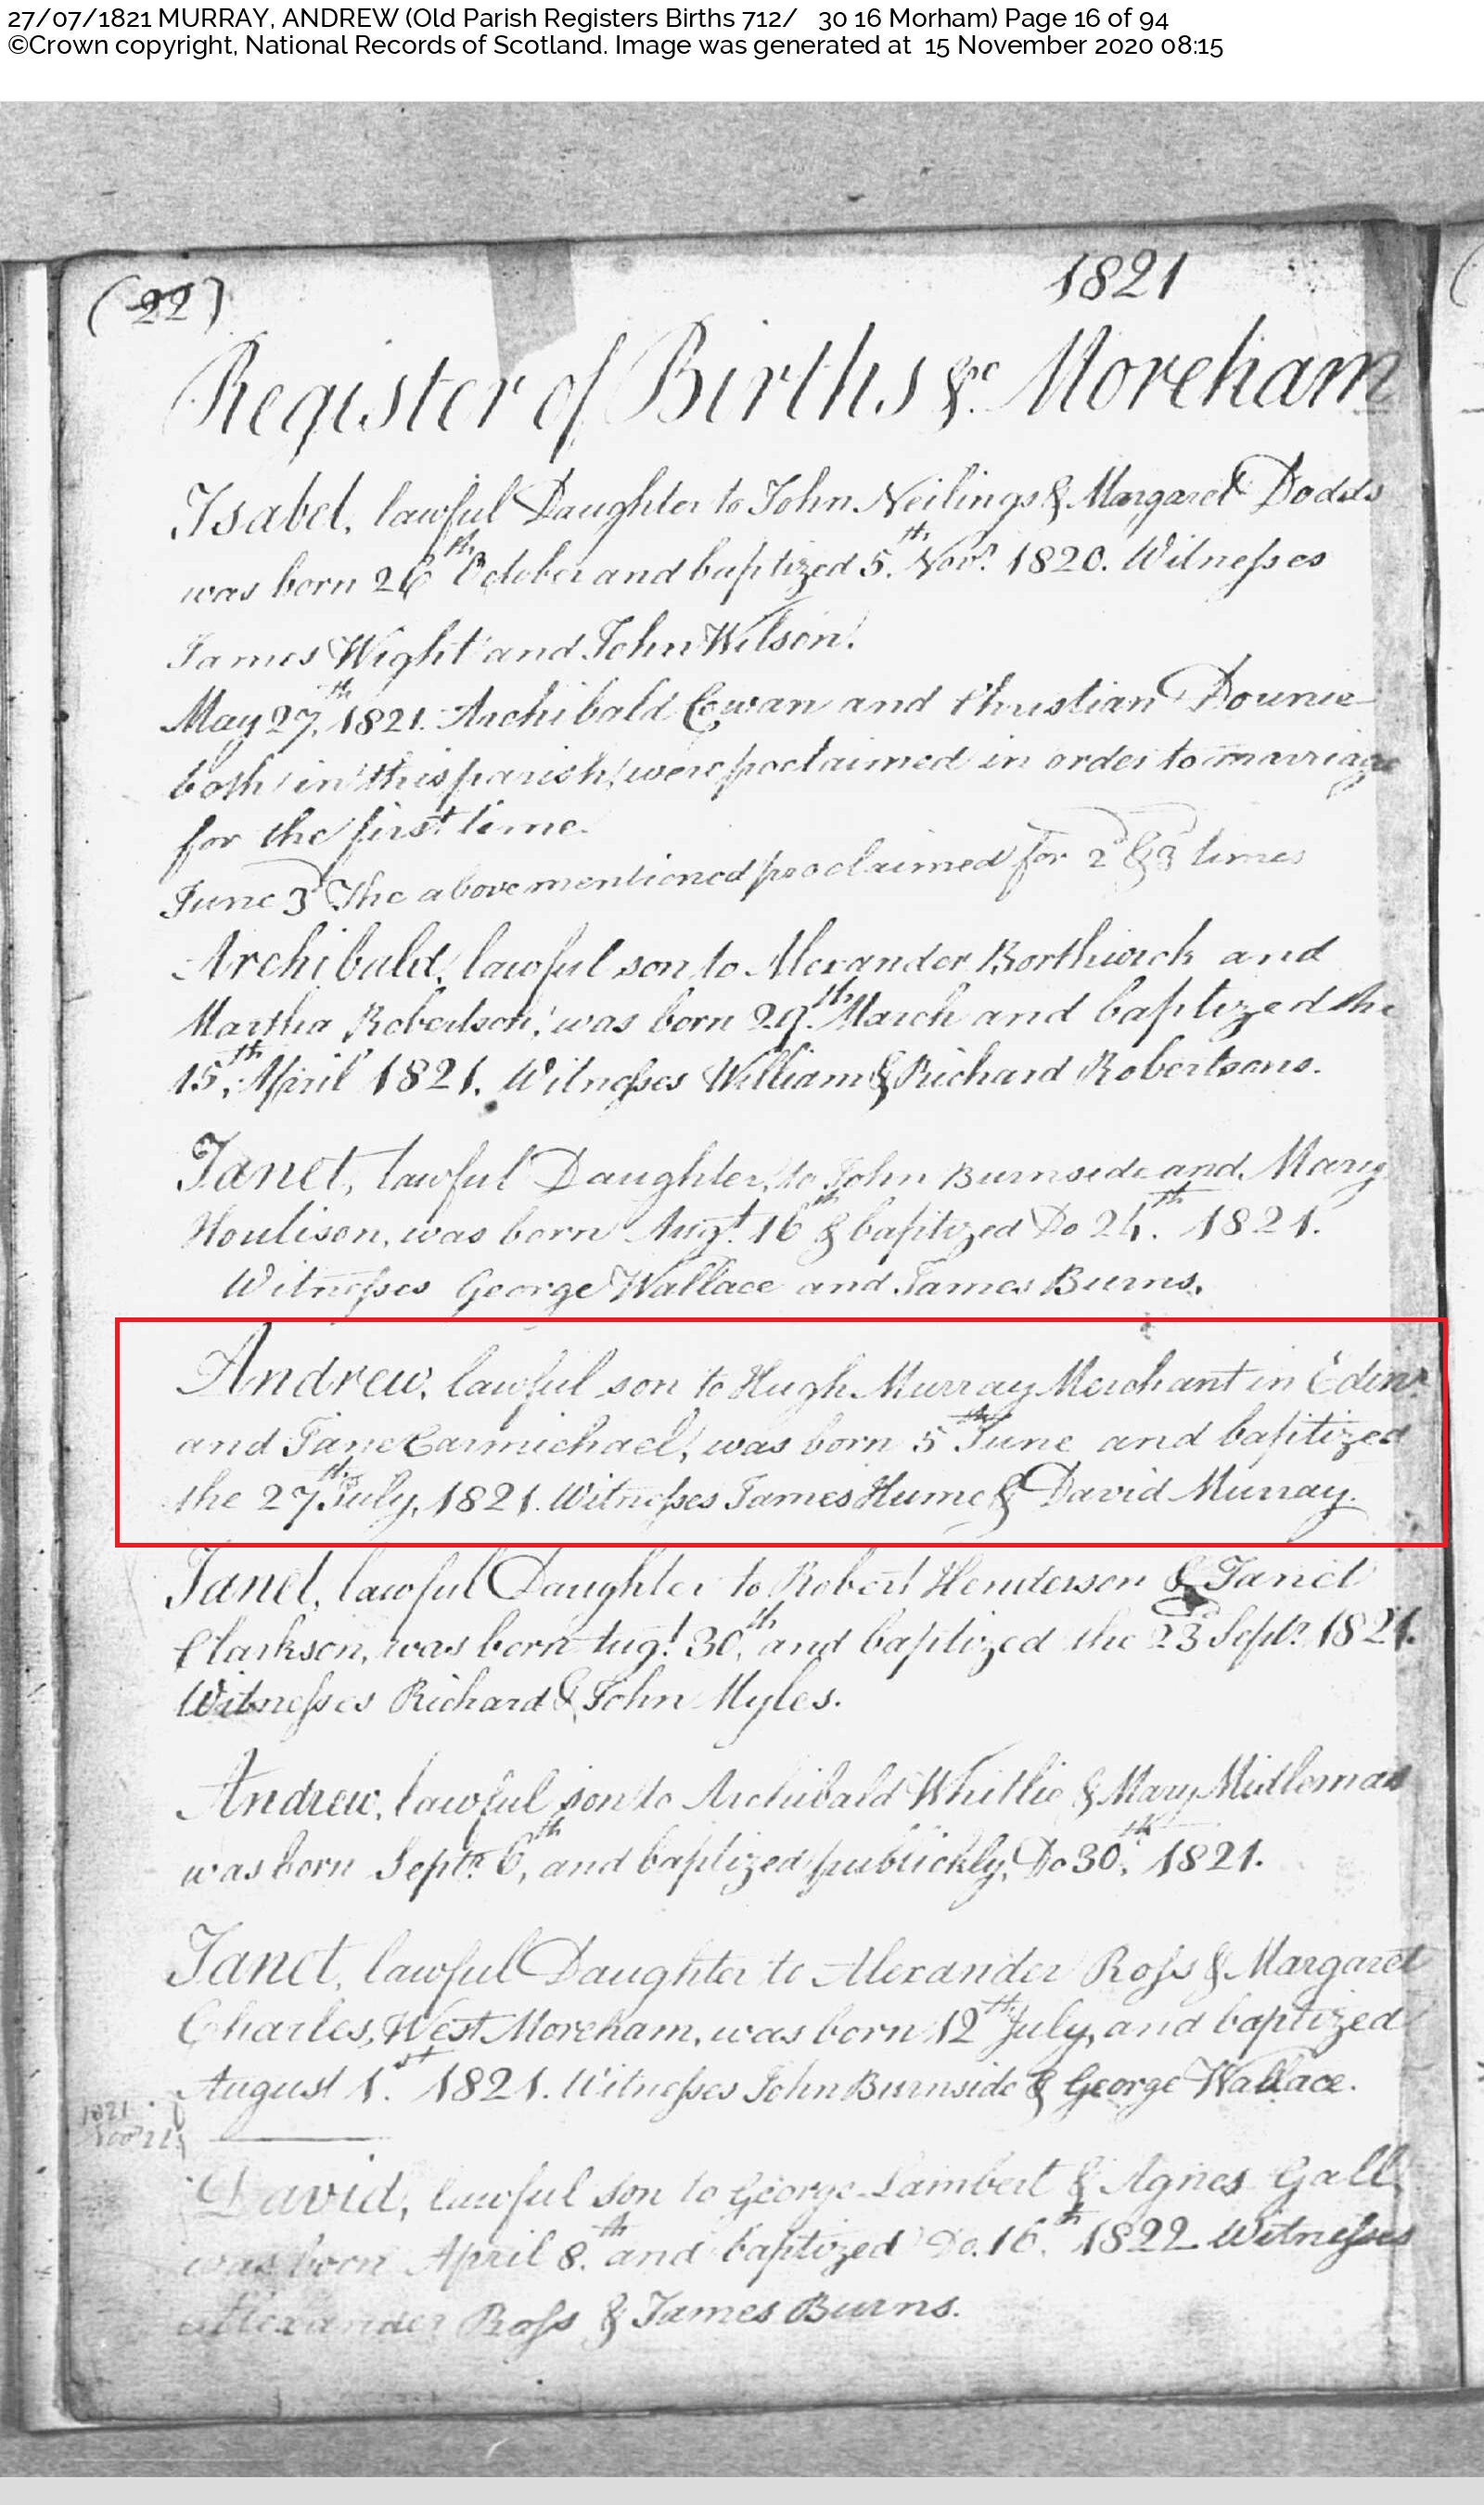 27/07/1821 MURRAY, ANDREW (Old Parish Registers Births 712/ 30 16 Morham) Page 16 of 94
©Crown copyright, National Records of Scotland. Image was generated at 15 November 2020 08:15
(22)
1821
Register of Births &c Moreham
Isabel, lawful Daughter to John Neilings & Margaret Dodds
was born 26th October and baptized 5th Novr. 1820. Witnesses
James Wight and John Wilson.
May 27th, 1821. Archibald Cowan and Christian Dounie
both in this parish, were proclaimed in order to marriage
for the first time.
June 3d The above mentioned proclaimed for 2d & 3d times
Archibald, lawful son to Alexander Borthwick and
Martha Robertson, was born 29th March and baptized the
15th, April 1821. Witnesses William & Richard Robertsons.
Janet, lawful Daughter, to John Burnside and Mary
Houlison, was born Augt. 16th & baptized Do 24th. 1821.
Witnesses George Wallace and James Burns.
Andrew, lawful son to Hugh Murray Merchant in Edinr.
and Jane Carmichael, was born 5th June and baptized
the 27th July, 1821. Witnesses James Hume & David Murray.
Janet, lawful Daughter to Robert Henderson & Janet
Clarkson, was born Augt. 30th, and baptized the 23d Septr. 1821.
Witnesses Richard & John Myles.
Andrew, lawful son to Archibald Whitlie & Mary Midlemas
was born Septr. 6th, and baptized publickly, Do 30th, 1821.
Janet, lawful Daughter to Alexander Ross & Margaret
Charles, West Moreham, was born 12th July, and baptized
August 1st. 1821. Witnesses John Burnside & George Wallace.
1821
Novr 22
David, lawful son to George Lambert & Agnes Gall
was born April 8th. and baptized Do. 16th. 1822 Witnesses
Alexander Ross & James Burns.